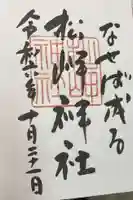 なせば成る
松岬神社
令和 年 十月二十一日